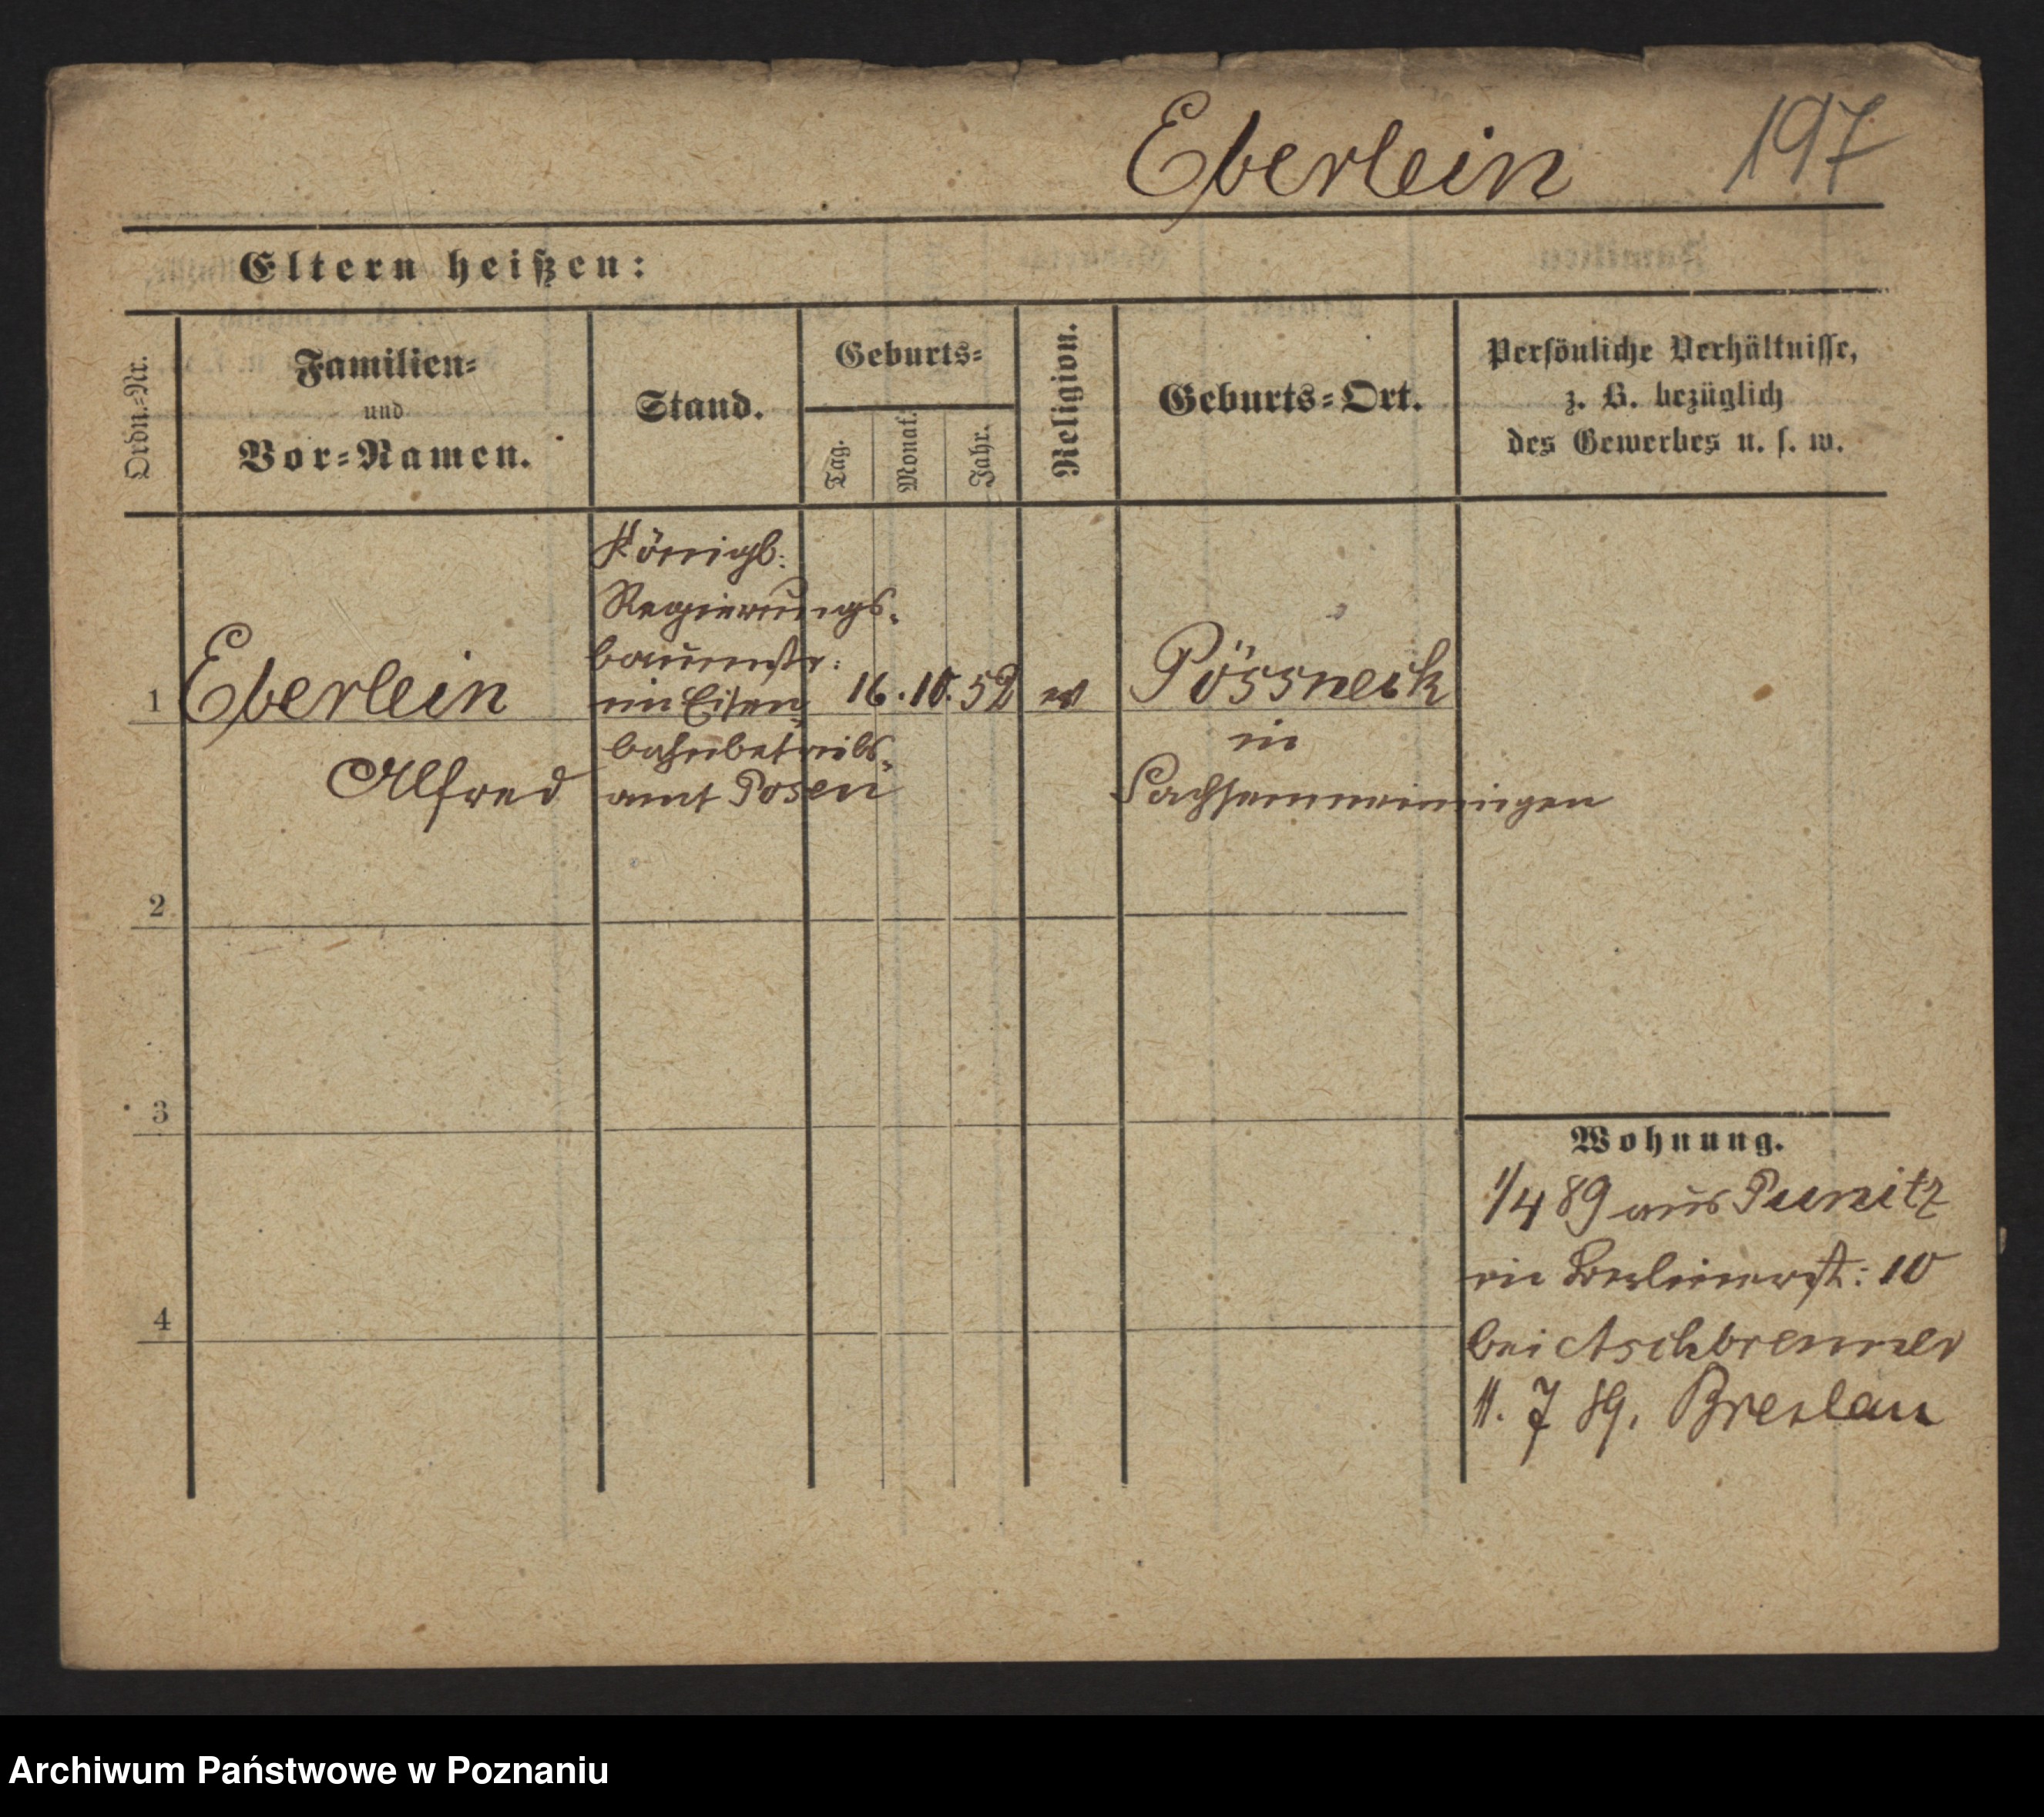 Eberlein 197
Eltern heißen:
Ordn.-Nr.
Familien-
und
Vor-Namen.
Stand.
Geburts-
Tag.
Monat.
Jahr.
Religion.
Geburts-Ort.
Persönliche Verhältnisse,
z. B. bezüglich
des Gewerbes u. s. w.
1
Eberlein
Alfred
Königl:
Regierungs-
baumstr:
im Eisen-
bahnbetriebs-
amt Posen
16. 10. 52
ev
Pössneck
in
Sachsenmeiningen
2
3
4
Wohnung.
1/4 89 aus Punitz
in Berlinerst: 10
bei Aschbrenner
11. 7 89. Breslau
Archiwum Państwowe w Poznaniu